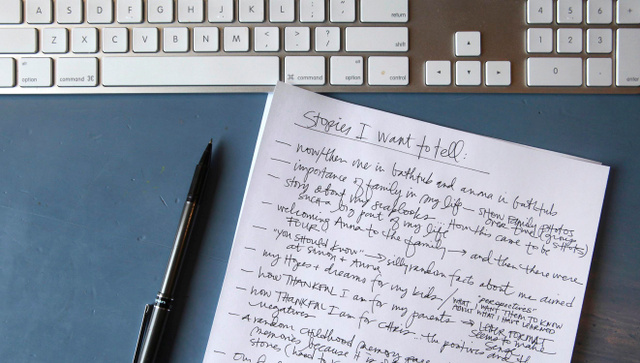 A S D F G H J K L : ; " ' return
Z X C V B N M < , > . ? / shift
option command ⌘ ⌘ command option control
1 2 3 4 5 6
0 .
Stories I want to tell:
— now/then me in bathtub and anna in bathtub
— importance of family in my life — show family photos over time (group shots)
— story about my scrapbooks... How this came to be such a big part of my life
— welcoming Anna to the family → and then there were FOUR
— "you should know" → silly random facts about me aimed at Simon + Anna
— my Hopes + dreams for my kids / "perspectives" WHAT I WANT THEM TO KNOW ABOUT WHAT I HAVE LEARNED
— how THANKFUL I am for my parents → LETTER FORMAT seems to make
— how THANKFUL I am for Chris... the positive and negatives
— A random childhood memory
memories because it is
stories (hard to
— Our